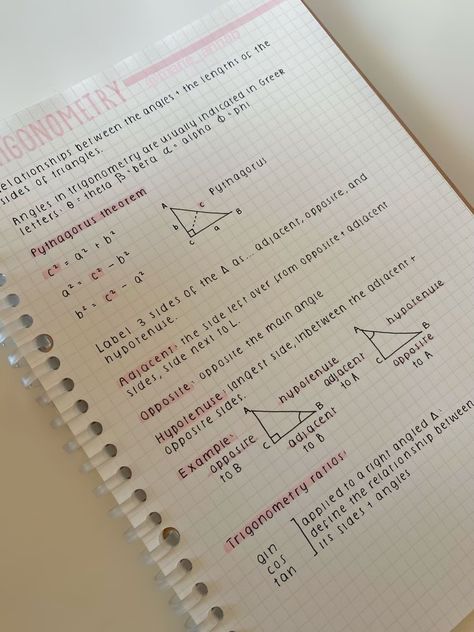 RIGONOMETRY
relationships between the angles + the lengths of the
sides of triangles.
Angles in trigonometry are usually indicated in Greek
letters. θ = theta β = beta α = alpha Φ = phi
Pythagorus theorem
c² = a² + b²
a² = c² - b²
b² = c² - a²
Pythagorus
A
c
B
b
a
C
Label 3 sides of the Δ as... adjacent, opposite, and
hypotenuse.
Adjacent: the side left over from opposite + adjacent
sides, side next to L.
Opposite: opposite the main angle
Hypotenuse: longest side, inbetween the adjacent +
opposite sides.
Example:
opposite
to B
A
hypotenuse
B
C
adjacent
to B
adjacent
to A
A
hypotenuse
B
C
opposite
to A
Trigonometry ratios:
gin
cos
tan
applied to a right angled Δ.
define the relationship between
its sides + angles